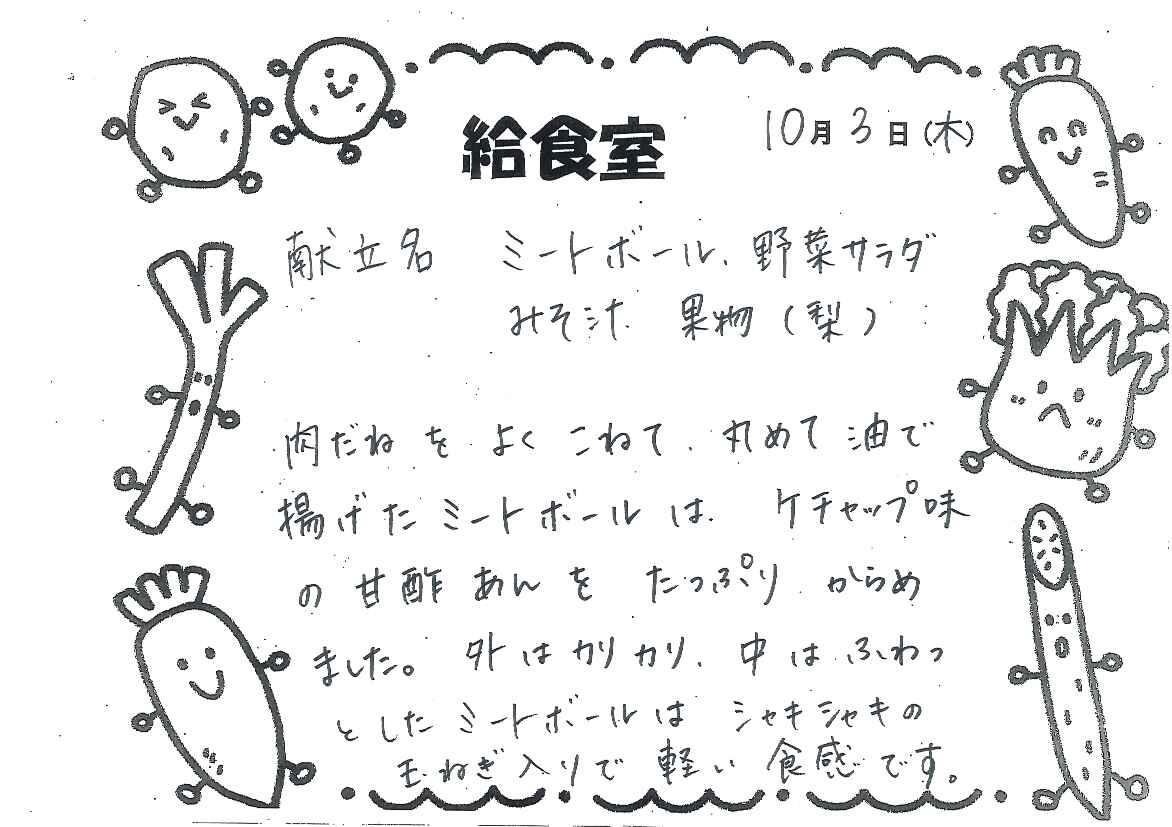 給食室
10月3日(木)
献立名 ミートボール、野菜サラダ
みそ汁 果物(梨)
肉だねをよくこねて、丸めて油で
揚げたミートボールは、ケチャップ味
の甘酢あんをたっぷりからめ
ました。外はカリカリ、中はふわっ
としたミートボールはシャキシャキの
玉ねぎ入りで軽い食感です。